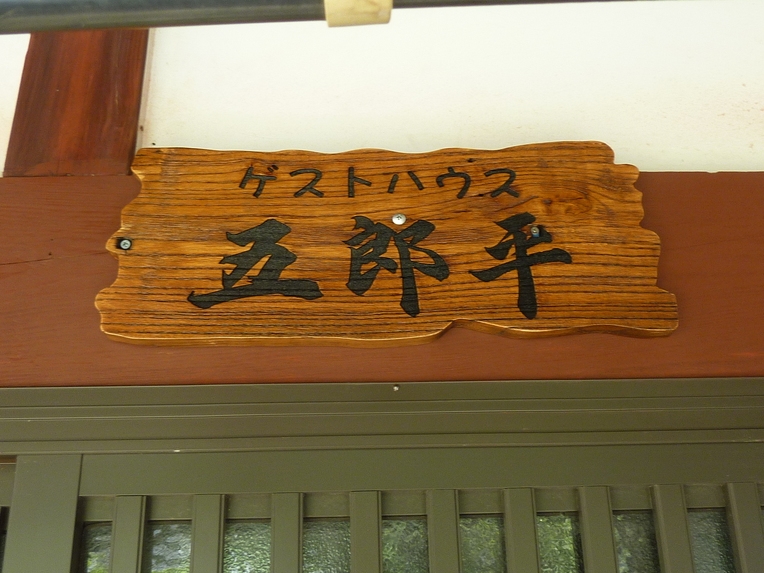 ゲストハウス
五郎平